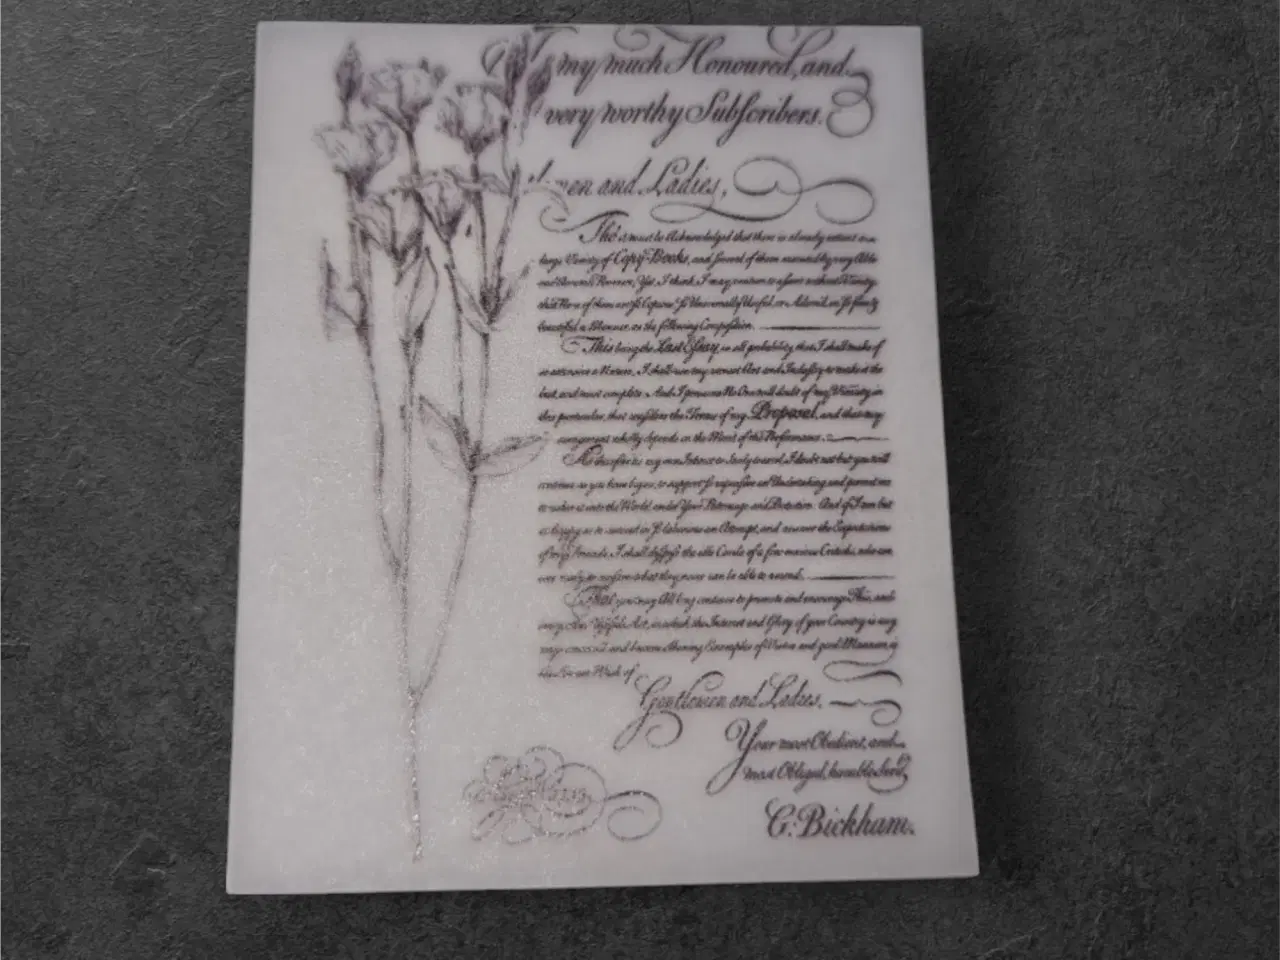 my much Honoured, and
very worthy Subscribers.
men and Ladies,
Tho' it must be Acknowledged that there is already extant a
large Variety of Copy-Books, and several of them executed by very Able
and Persons, Yet I think I may venture to assure without Vanity
that None of them are so Copious So Universally Useful, or Adorn'd in So
beautiful a Manner, as the following Composition.
This being the Last Essay, in all probability that I shall make of
so extensive a Nature, I shall use my utmost Art and Industry to make it the
best, and most complete. And I presume No One will doubt of my Veracity in
this particular, that considers the Terms of my Proposal, and that my
encouragement wholly depends on the Merit of the Performance.
As therefore its my own Interest to I doubt not but you will
continue as you have begun, to support So expensive an Undertaking, and permit me
to usher it into the World under Your Patronage and Protection. And if I am but
so happy as to succeed in So laborious an Attempt, and answer the Expectations
of my Friends, I shall despise the idle Cavils of a few envious Criticks, who are
ever ready to censure what they never can be able to amend.
That you may All long continue to promote and encourage This, and
every other Usefull Art, in which the Interest and Glory of your Country is any
way concern'd and become shining Examples of Virtue and good Manners, is
the Wish of
Gentlemen and Ladies,
Your most Obedient, and
most Obliged, humble Serv.t
G: Bickham.